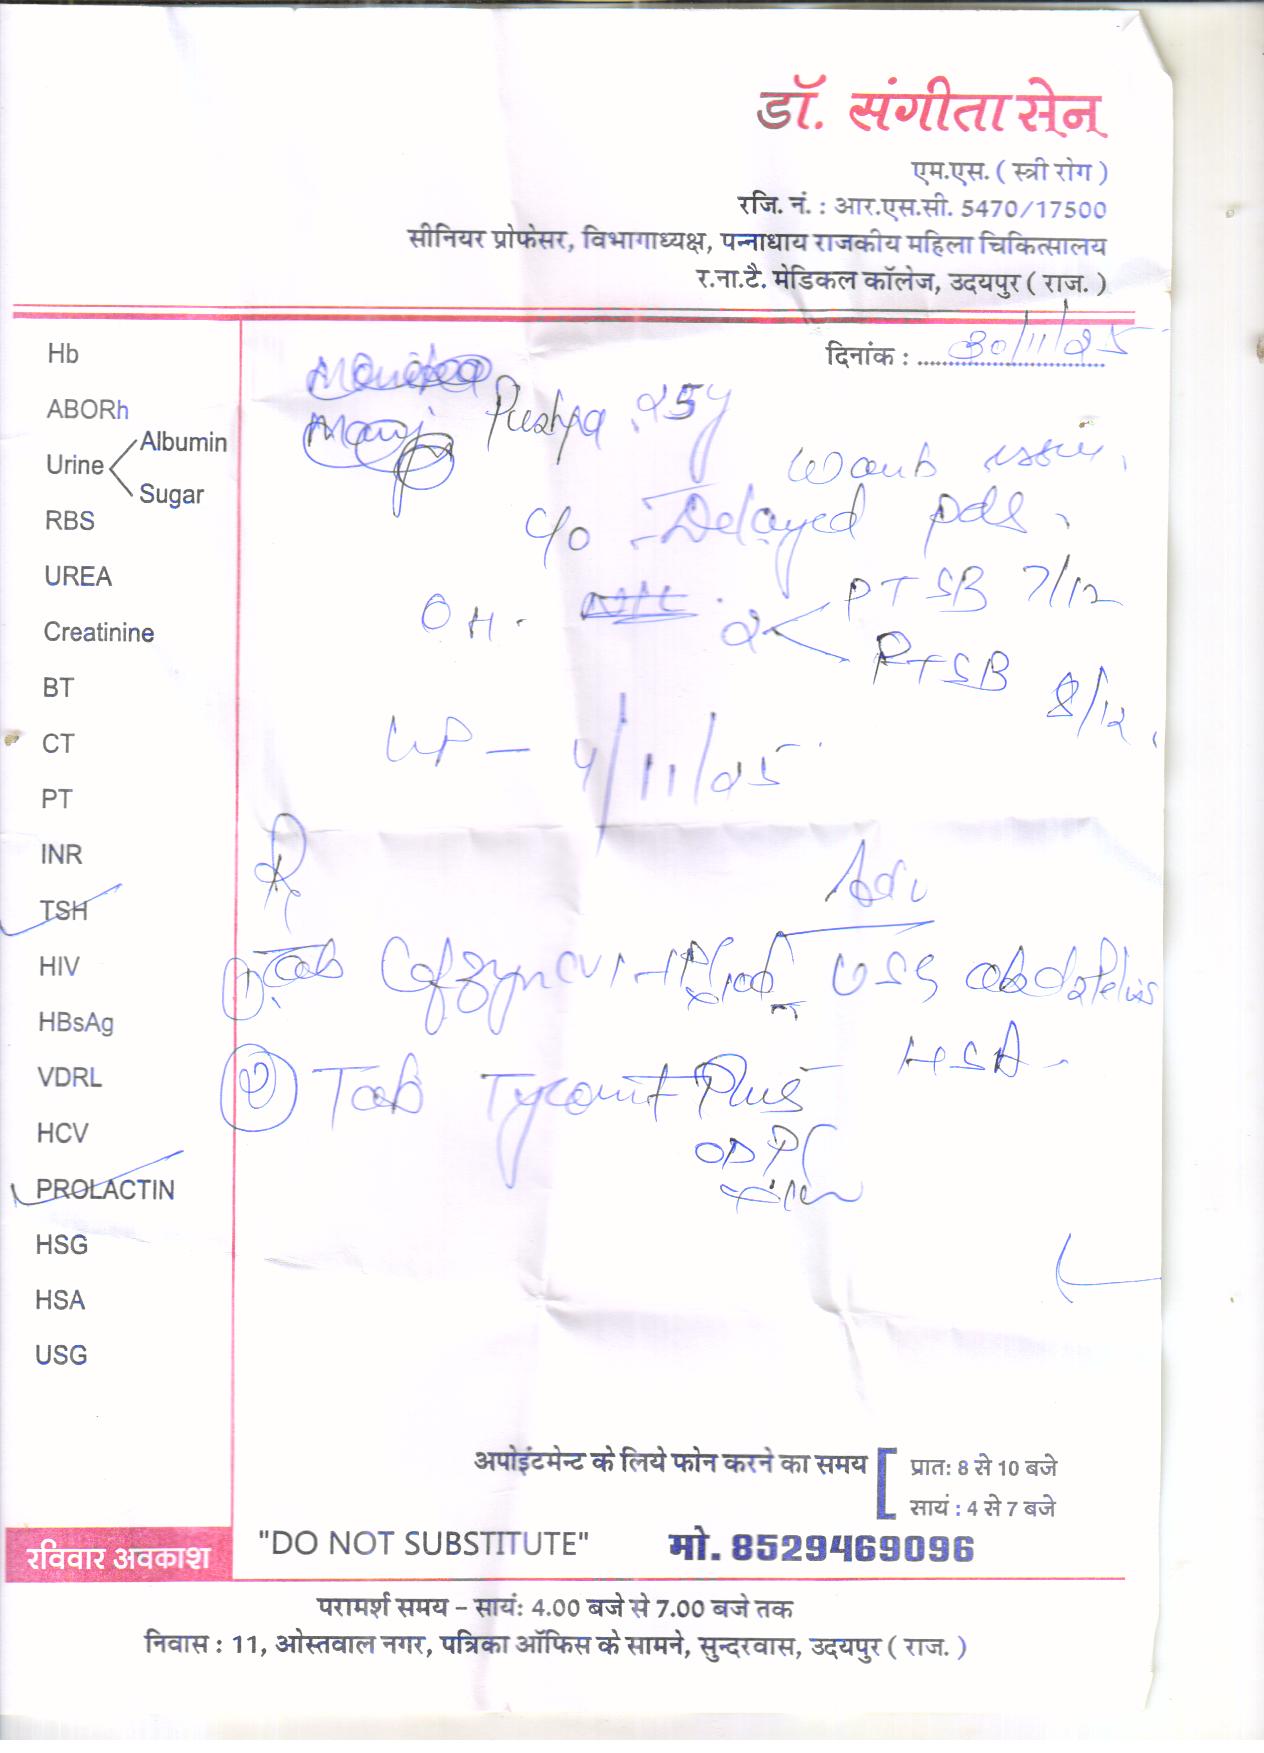 डॉ. संगीता सेन
एम.एस. ( स्त्री रोग )
रजि. नं. : आर.एस.सी. 5470/17500
सीनियर प्रोफेसर, विभागाध्यक्ष, पन्नाधाय राजकीय महिला चिकित्सालय
र.ना.टै. मेडिकल कॉलेज, उदयपुर ( राज. )
दिनांक : 30/11/25
Hb
ABORh
Urine Albumin
Sugar
RBS
UREA
Creatinine
BT
CT
PT
INR
TSH
HIV
HBsAg
VDRL
HCV
PROLACTIN
HSG
HSA
USG
Pushpa 25y
Wants issue.
C/o - Delayed pds.
OH. 2 PTSB 7/12
PTSB 8/12
LMP - 4/11/25
Rx
Adv
① Tab
USG abd & Pelvis
HSA
② Tab Plus
OD
अपोइंटमेन्ट के लिये फोन करने का समय [ प्रात: 8 से 10 बजे
सायं : 4 से 7 बजे
रविवार अवकाश
"DO NOT SUBSTITUTE" मो. 8529469096
परामर्श समय – सायं: 4.00 बजे से 7.00 बजे तक
निवास : 11, ओस्तवाल नगर, पत्रिका ऑफिस के सामने, सुन्दरवास, उदयपुर ( राज. )